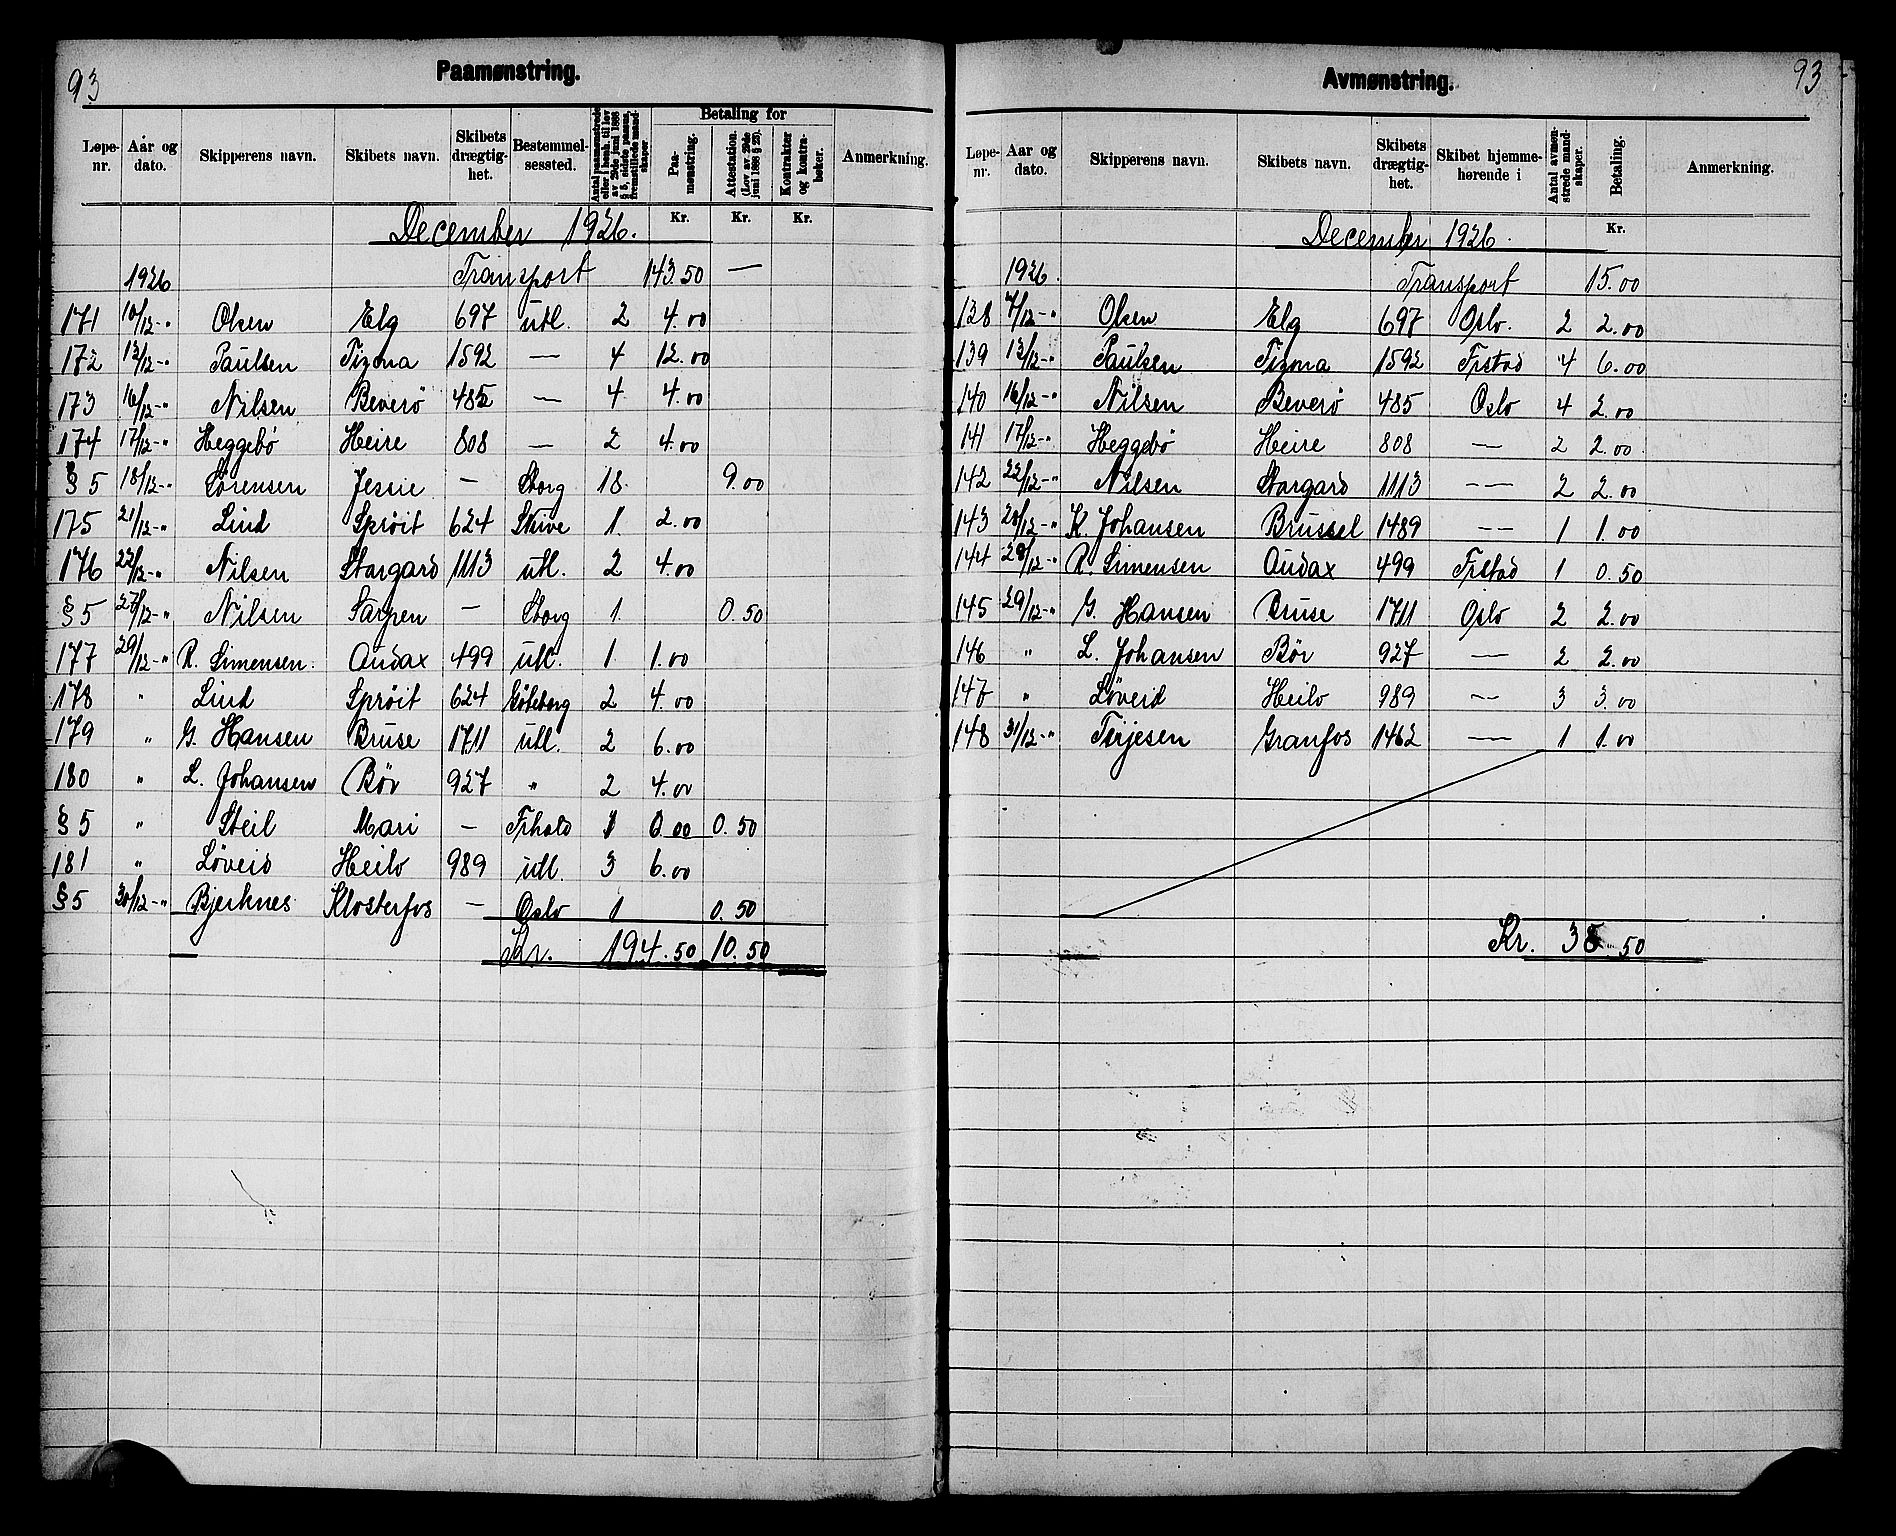 93
Paamønstring.
Løpe-nr. | Aar og dato. | Skipperens navn. | Skibets navn. | Skibets drægtig-het. | Bestemmel-sessted. | Antal paamønstrede eller i henh. til lov av 29de juni 1888 § 5, sidste passus, fremstillede mand-skaper | Betaling for | Paa-mønstring. | Attestation. (Lov av. 29de juni 1888 § 29). | Kontrakter og kontra-bøker. | Anmerkning.
Kr. | Kr. | Kr.
December 1926.
1926 Transport 143.50 —
171 10/12 -„ Olsen Elg 697 utl. 2 4.00
172 13/12 -„ Paulsen Tizona 1592 — 4 12.00
173 16/12 -„ Nilsen Beverø 485 — 4 4.00
174 17/12 -„ Heggebø Heire 808 — 2 4.00
§ 5 18/12 -„ Sørensen Jessie — Sborg 18 9.00
175 21/12 -„ Lind Sprøit 624 Skive 1. 2.00
176 22/12 -„ Nilsen Stargard 1113 utl. 2 4.00
§ 5 27/12 -„ Nilsen Sarpen — Sborg 1. 0.50
177 29/12 -„ R. Simensen. Audax 499 utl. 1 1.00
178 „ Lind Sprøit 624 Göteborg 2 4.00
179 „ G. Hansen Bruse 1711 utl. 2 6.00
180 „ L. Johansen Bør 927 „ 2 4.00
§ 5 „ Steil Mari — Frhald 1 0.00 0.50
181 „ Løveid Heilo 989 utl. 3 6.00
§ 5 30/12 -„ Bjerknes Klosterfos — Oslo 1 0.50
Kr. 194.50 10.50
93
Avmønstring.
Løpe-nr. | Aar og dato. | Skipperens navn. | Skibets navn. | Skibets drægtig-het. | Skibet hjemme-hørende i | Antal avmøn-strede mand-skaper. | Betaling. | Anmerkning.
Kr.
December 1926.
1926. Transport 15.00
138 7/12 -„ Olsen Elg 697 Oslo. 2 2.00
139 13/12 -„ Paulsen Tizona 1592 Frstad 4 6.00
140 16/12 -„ Nilsen Beverø 485 Oslo 4 2.00
141 17/12 -„ Heggebø Heire 808 — 2 2.00
142 22/12 -„ Nilsen Stargard 1113 — 2 2.00
143 28/12 -„ K. Johansen Brussel 1489 — 1 1.00
144 29/12 -„ R. Simensen Audax 499 Frstad 1 0.50
145 29/12 -„ G. Hansen Bruse 1711 Oslo 2 2.00
146 „ L. Johansen Bør 927 — 2 2.00
147 „ Løveid Heilo 989 — 3 3.00
148 31/12 -„ Tirjesen Granfos 1462 — 1 1.00
Kr. 38.50